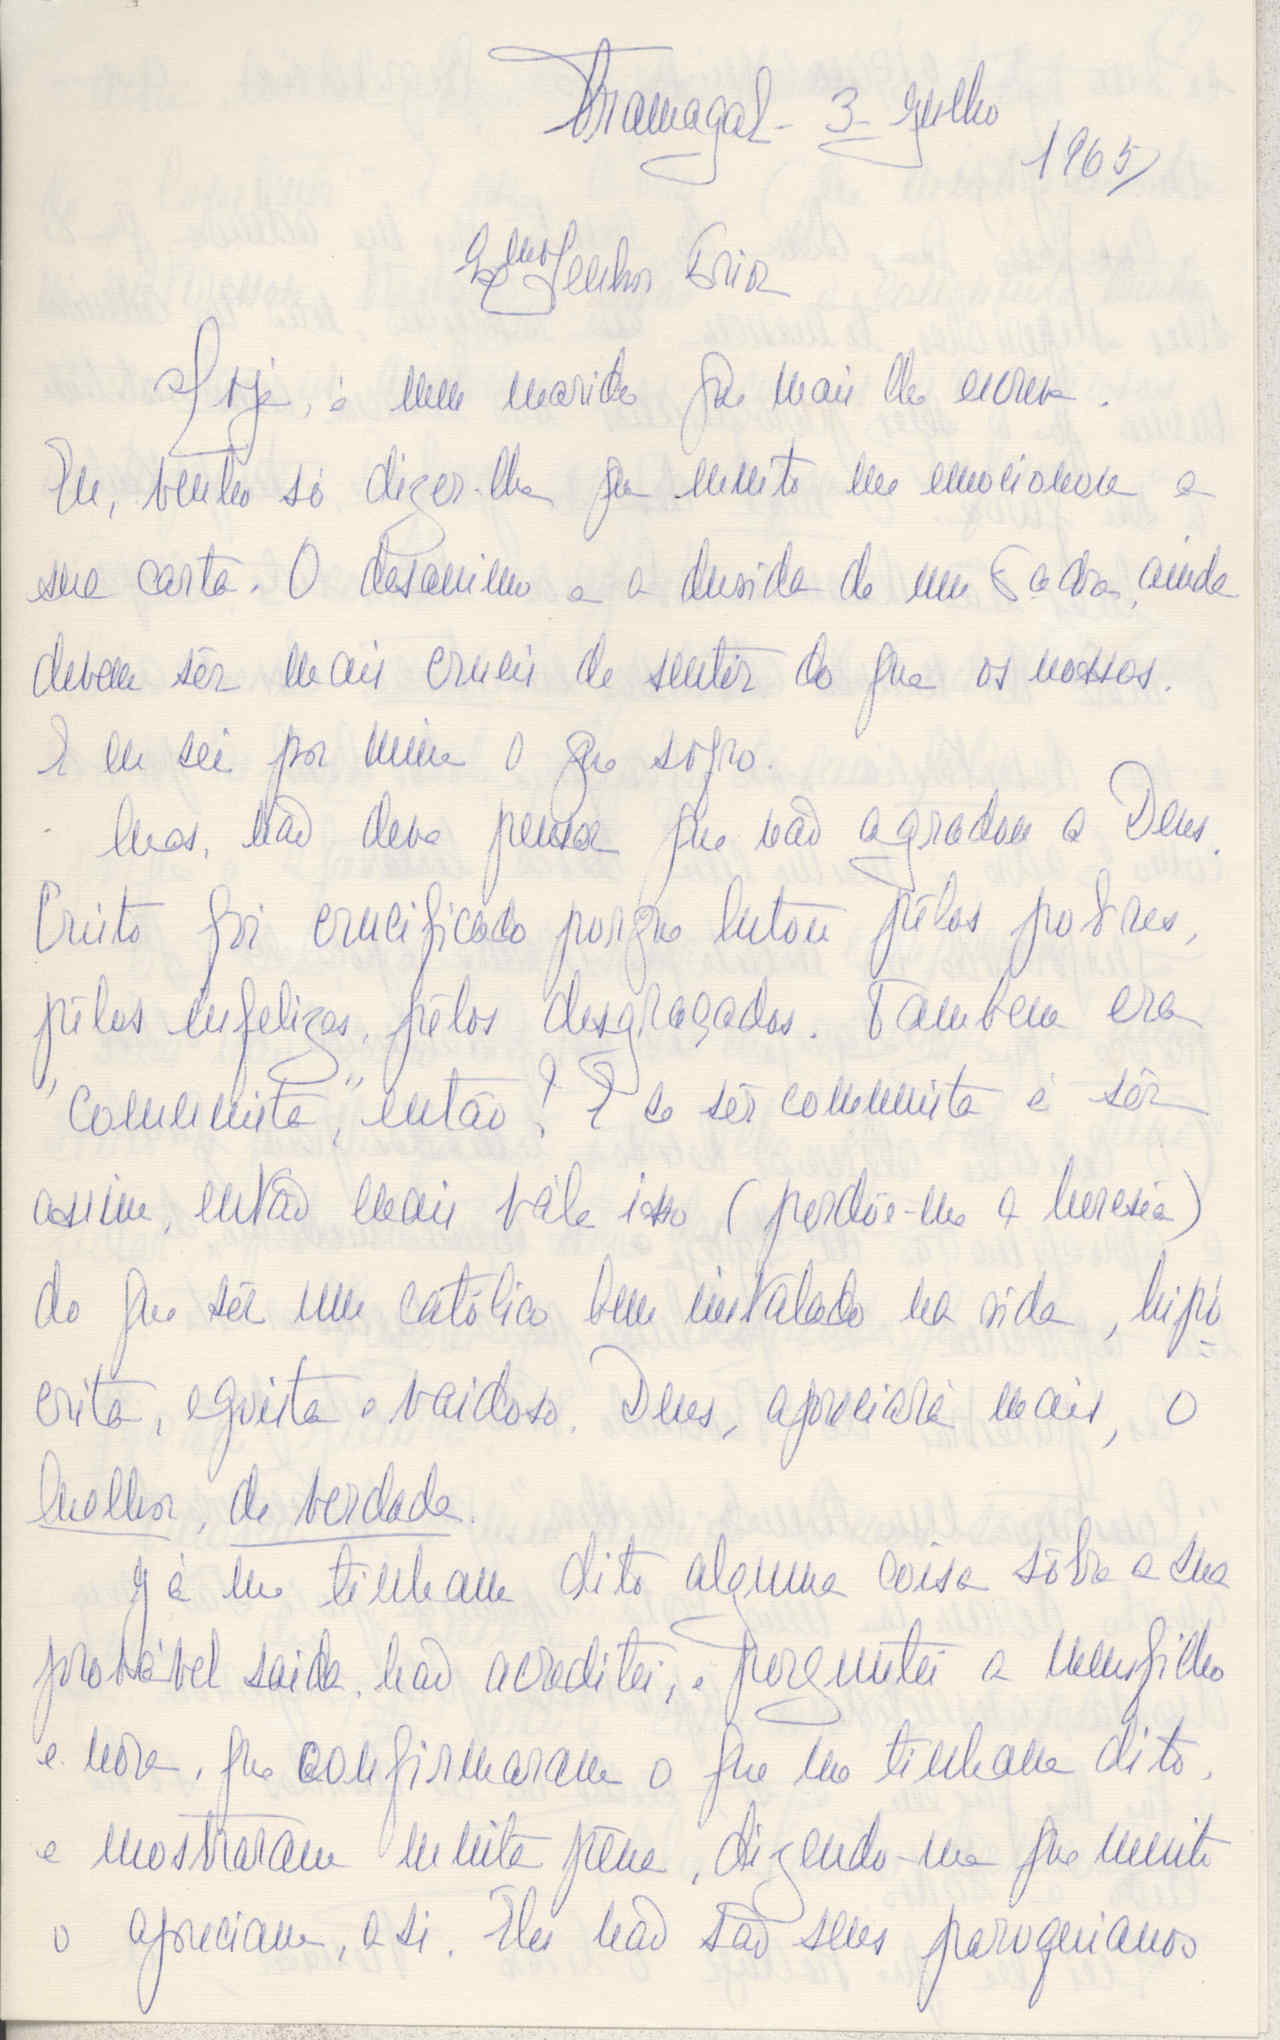 Tramagal - 3 - Julho
1965
Exmo Senhor Prior
Hoje, é meu marido que mais lhe escreve.
Eu, venho só dizer-lhe que muito me emocionou a
sua carta. O desanimo e a duvida de um Padre, ainda
devem sêr mais crueis de sentir do que os nossos.
E eu sei por mim o que sofro.
Mas, não deve pensar que não agradou a Deus.
Cristo foi crucificado porque lutou pêlos pobres,
pêlos infelizes, pêlos desgraçados. Tambem era
"comunista", então? E se sêr comunista é sêr
assim, então mais vále isso (perdôe-me a heresia)
do que sêr um católico bem instalado na vida, hipó-
crita, egoista e vaidoso. Deus, apreciará mais, o
melhor, de verdade.
Já me tinham dito alguma coisa sôbre a sua
provável saida, não acreditei, e perguntei a meu filho
e nora, que confirmaram o que me tinham dito,
e mostraram muita pêna, dizendo-me que muito
o apreciam, a si. Eles não são seus paroquianos